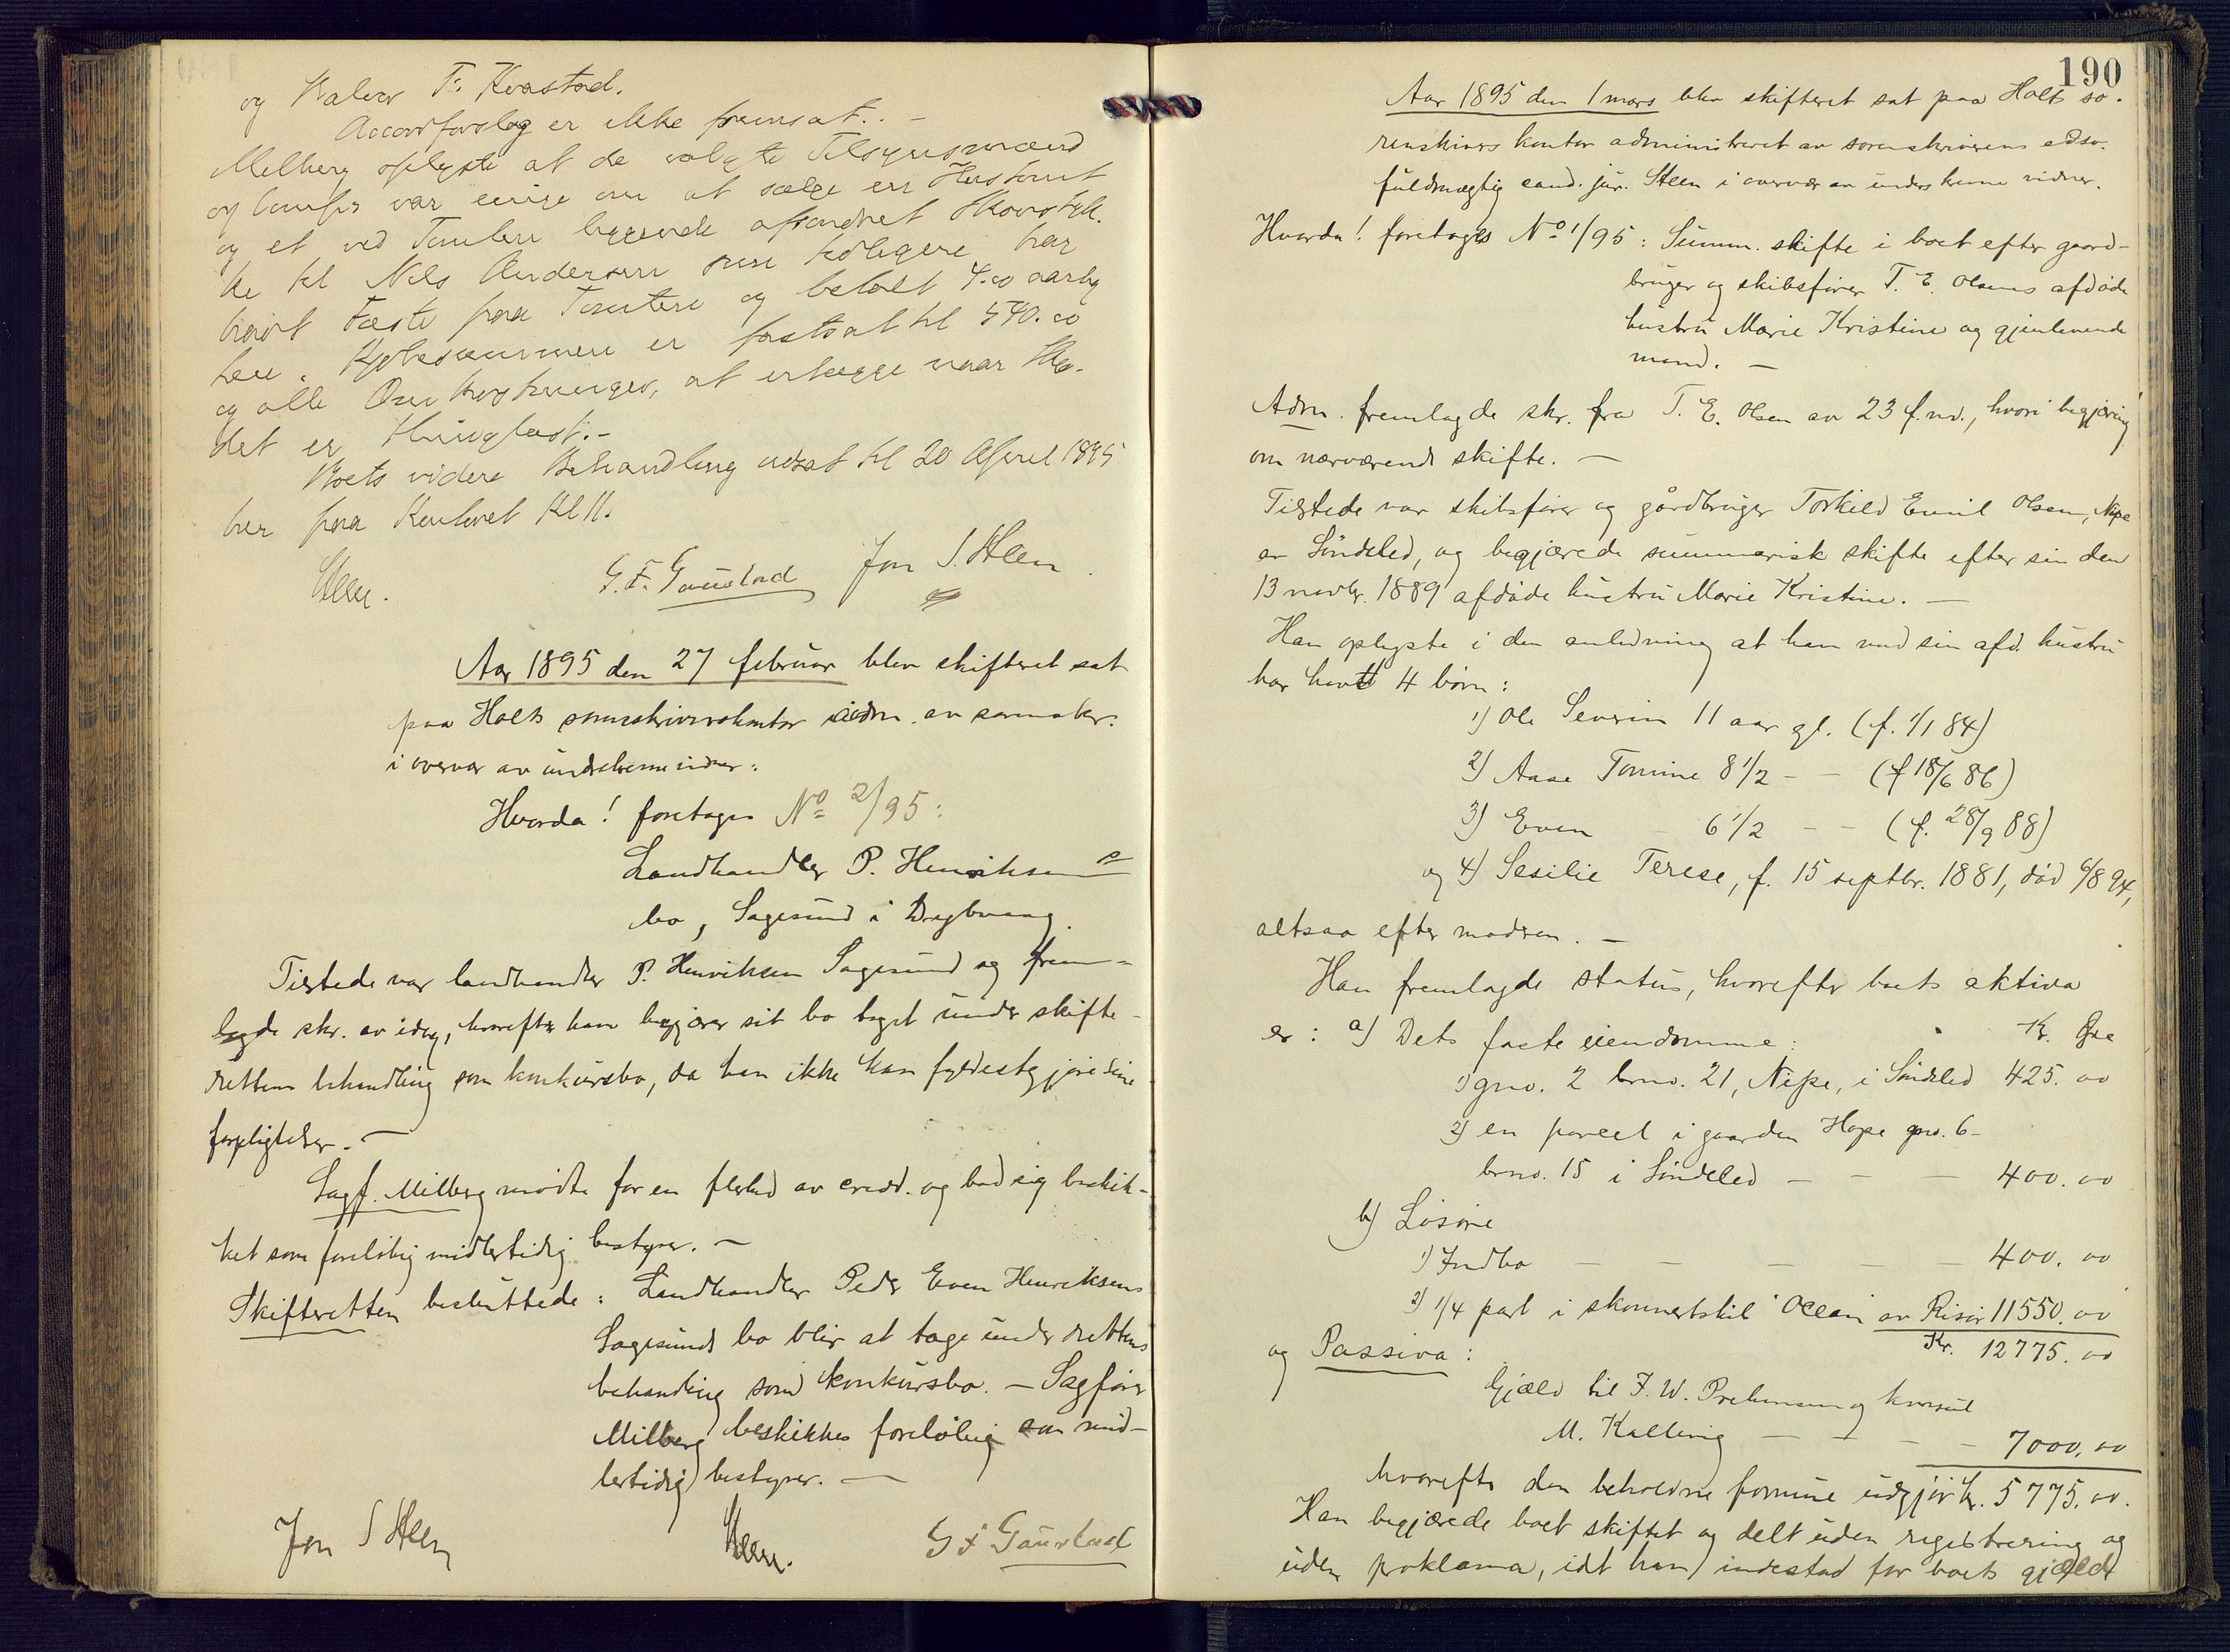 og Halvor T: Kvastad.
Accordforslag er ikke fremsat. -
Melberg oplyste at de valgte Tilsynsmænd
og var enige om at sælge en Hustomt
og et ved Tomten liggende afsondret Skovstyk-
ke til Nils Andersen som tidligere har
havt Fæste paa Tomten og betalt 4.00 aarlig
. Kjøbesummen er fastsat til 540.00
og alle Omkostninger, at erlægge naar Skjø-
det er thinglæst.-
Boets videre Behandling udsat til 20 April 1895
her paa Kontoret Kl 11.
Steen. G. F. Gaustad Jon S. Steen
Aar 1895 den 27 februar blev skifteret sat
paa Holts sorenskriverkontor adm. av sorenskr.
i overvær av underskrevne vidner:
Hvorda! foretages No 2/95:
Landhandler P. Henriksens
bo, Sagesund i Dybvaag.
Tilstede var landhandler P. Henriksen Sagesund og frem-
lagde skr. av idag, hvorefter han begjærer sit bo taget under skifte-
rettens behandling som konkursbo, da han ikke kan fyldestgjøre sine
forpligtelser. -
Sagf. Milberg mødte for en flerhed av credd. og bad sig beskik-
ket som foreløbig midlertidig bestyrer. -
Skifteretten besluttede: Landhandler Peder Even Henriksens
Sagesunds bo blir at tage under rettens
behandling som konkursbo. - Sagfører
Milberg beskikkes foreløbig som mid-
lertidig bestyrer. -
Jon S Steen Steen. G F Gaustad
190
Aar 1895 den 1 mars blev skifteret sat paa Holt so-
renskrivers kontor administreret av sorenskriverens edsv.
fuldmægtig cand. jur. Steen i overvær av underskrevne vidner.
Hvorda! foretages No 1/95: Summ. skifte i boet efter gaard-
bruger og skibsfører T. E. Olsens afdøde
hustru Marie Kristine og gjenlevende
mand. -
Adm. fremlagde skr. fra T. E. Olsen av 23 f.md., hvori begjæring
om nærværende skifte. -
Tilstede var skibsfører og gårdbruger Torkild Emil Olsen, Nipe
av Søndeled, og begjærede summarisk skifte efter sin den
13 novbr. 1889 afdøde hustru Marie Kristine. -
Han oplyste i den anledning at han med sin afd. hustru
har havt 4 børn:
1) Ole Severin 11 aar gl. (f. 1/1 84)
2) Aase Tomine 8 1/2 - - (f 18/6 86)
3) Even - 6 1/2 - - (f. 28/9 88)
og 4) Sesilie Terese, f. 15 septbr. 1881, død 6/8 94,
altsaa efter modren. -
Han fremlagde status, hvorefter boets aktiva
er: a) Dets faste eiendomme: Kr. Øre
1) gno. 2 brno. 21, Nipe, i Søndeled 425. 00
2) en parcel i gaarden Hope gno. 6-
brno. 15 i Søndeled - - - 400. 00
b) Løsøre
1) Indbo - - - - - 400. 00
2) 1/4 part i skonnertskib "Ocean" av Risør 11550. 00
Kr. 12775. 00
og Passiva:
Gjæld til F. W. Prebensen og konsul
M. Kallevig - - - - 7000. 00
hvorefter den beholdne formue udgjør kr. 5775. 00.
Han begjærede boet skiftet og delt uden registrering og
uden proklama, idet han indestod for boets gjæld